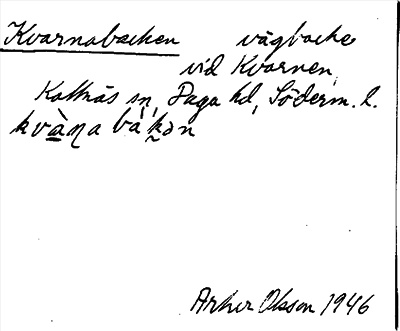 Kvarnabacken vägbacke
vid Kvarnen,
Kattnäs sn, Daga hd, Söderm. l.
kvàna bákən
Olsson 1946